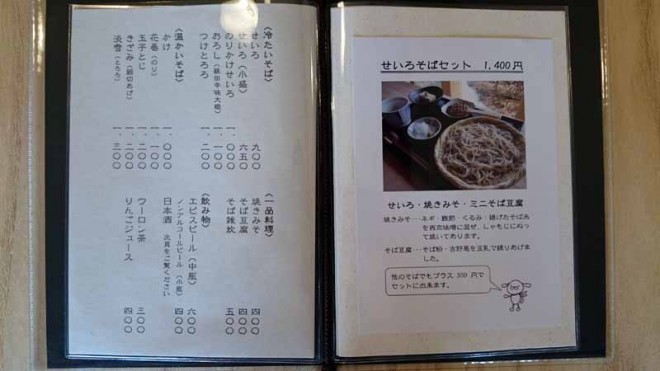 《冷たいそば》
せいろ 九〇〇
せいろ（小盛） 六五〇
のりかけせいろ 一、〇〇〇
おろし（親田辛味大根）
つけとろろ 一、二〇〇
《温かいそば》
かけ 一、〇〇〇
花巻（のり） 一、一〇〇
玉子とじ 一、二〇〇
きざみ（鶏切あげ） 一、二〇〇
淡雪（とろろ） 一、三〇〇
《一品料理》
焼きみそ 四〇〇
そば豆腐 四〇〇
そば雑炊 五〇〇
《飲み物》
エビスビール（中瓶） 六〇〇
ノンアルコールビール（小瓶） 四〇〇
日本酒 次頁をご覧ください
ウーロン茶 三〇〇
りんごジュース 四〇〇
せいろそばセット 1,400円
せいろ・焼きみそ・ミニそば豆腐
焼きみそ…ネギ・鰹節・くるみ・揚げたそば米
を西京味噌に混ぜ、しゃもじにぬっ
て焼いてあります。
そば豆腐…そば粉・吉野葛を豆乳で練りあげま
した。
他のそばでもプラス500円で
セットに出来ます。